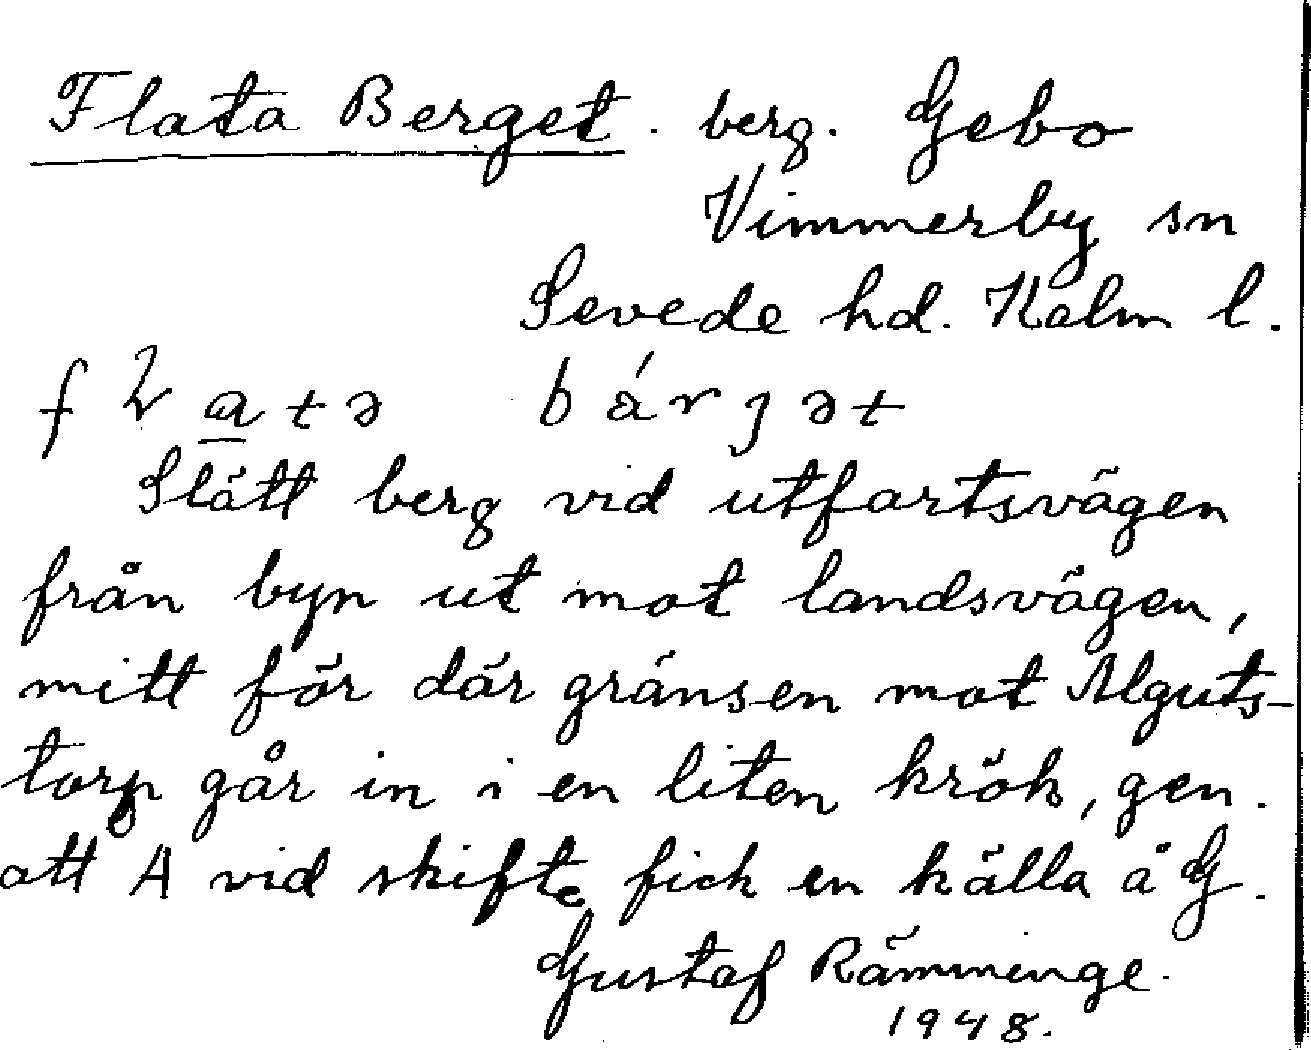 Flata Berget. berg. Gebo
Vimmerby sn
Sevede hd. Kalm l.
Slätt berg vid utfartsvägen
från byn ut mot landsvägen,
mitt för där gränsen mot Alguts-
torp går in i en liten krök, gen.
att A vid skifte fick en källa å G.
Gustaf Rämminge.
1948.